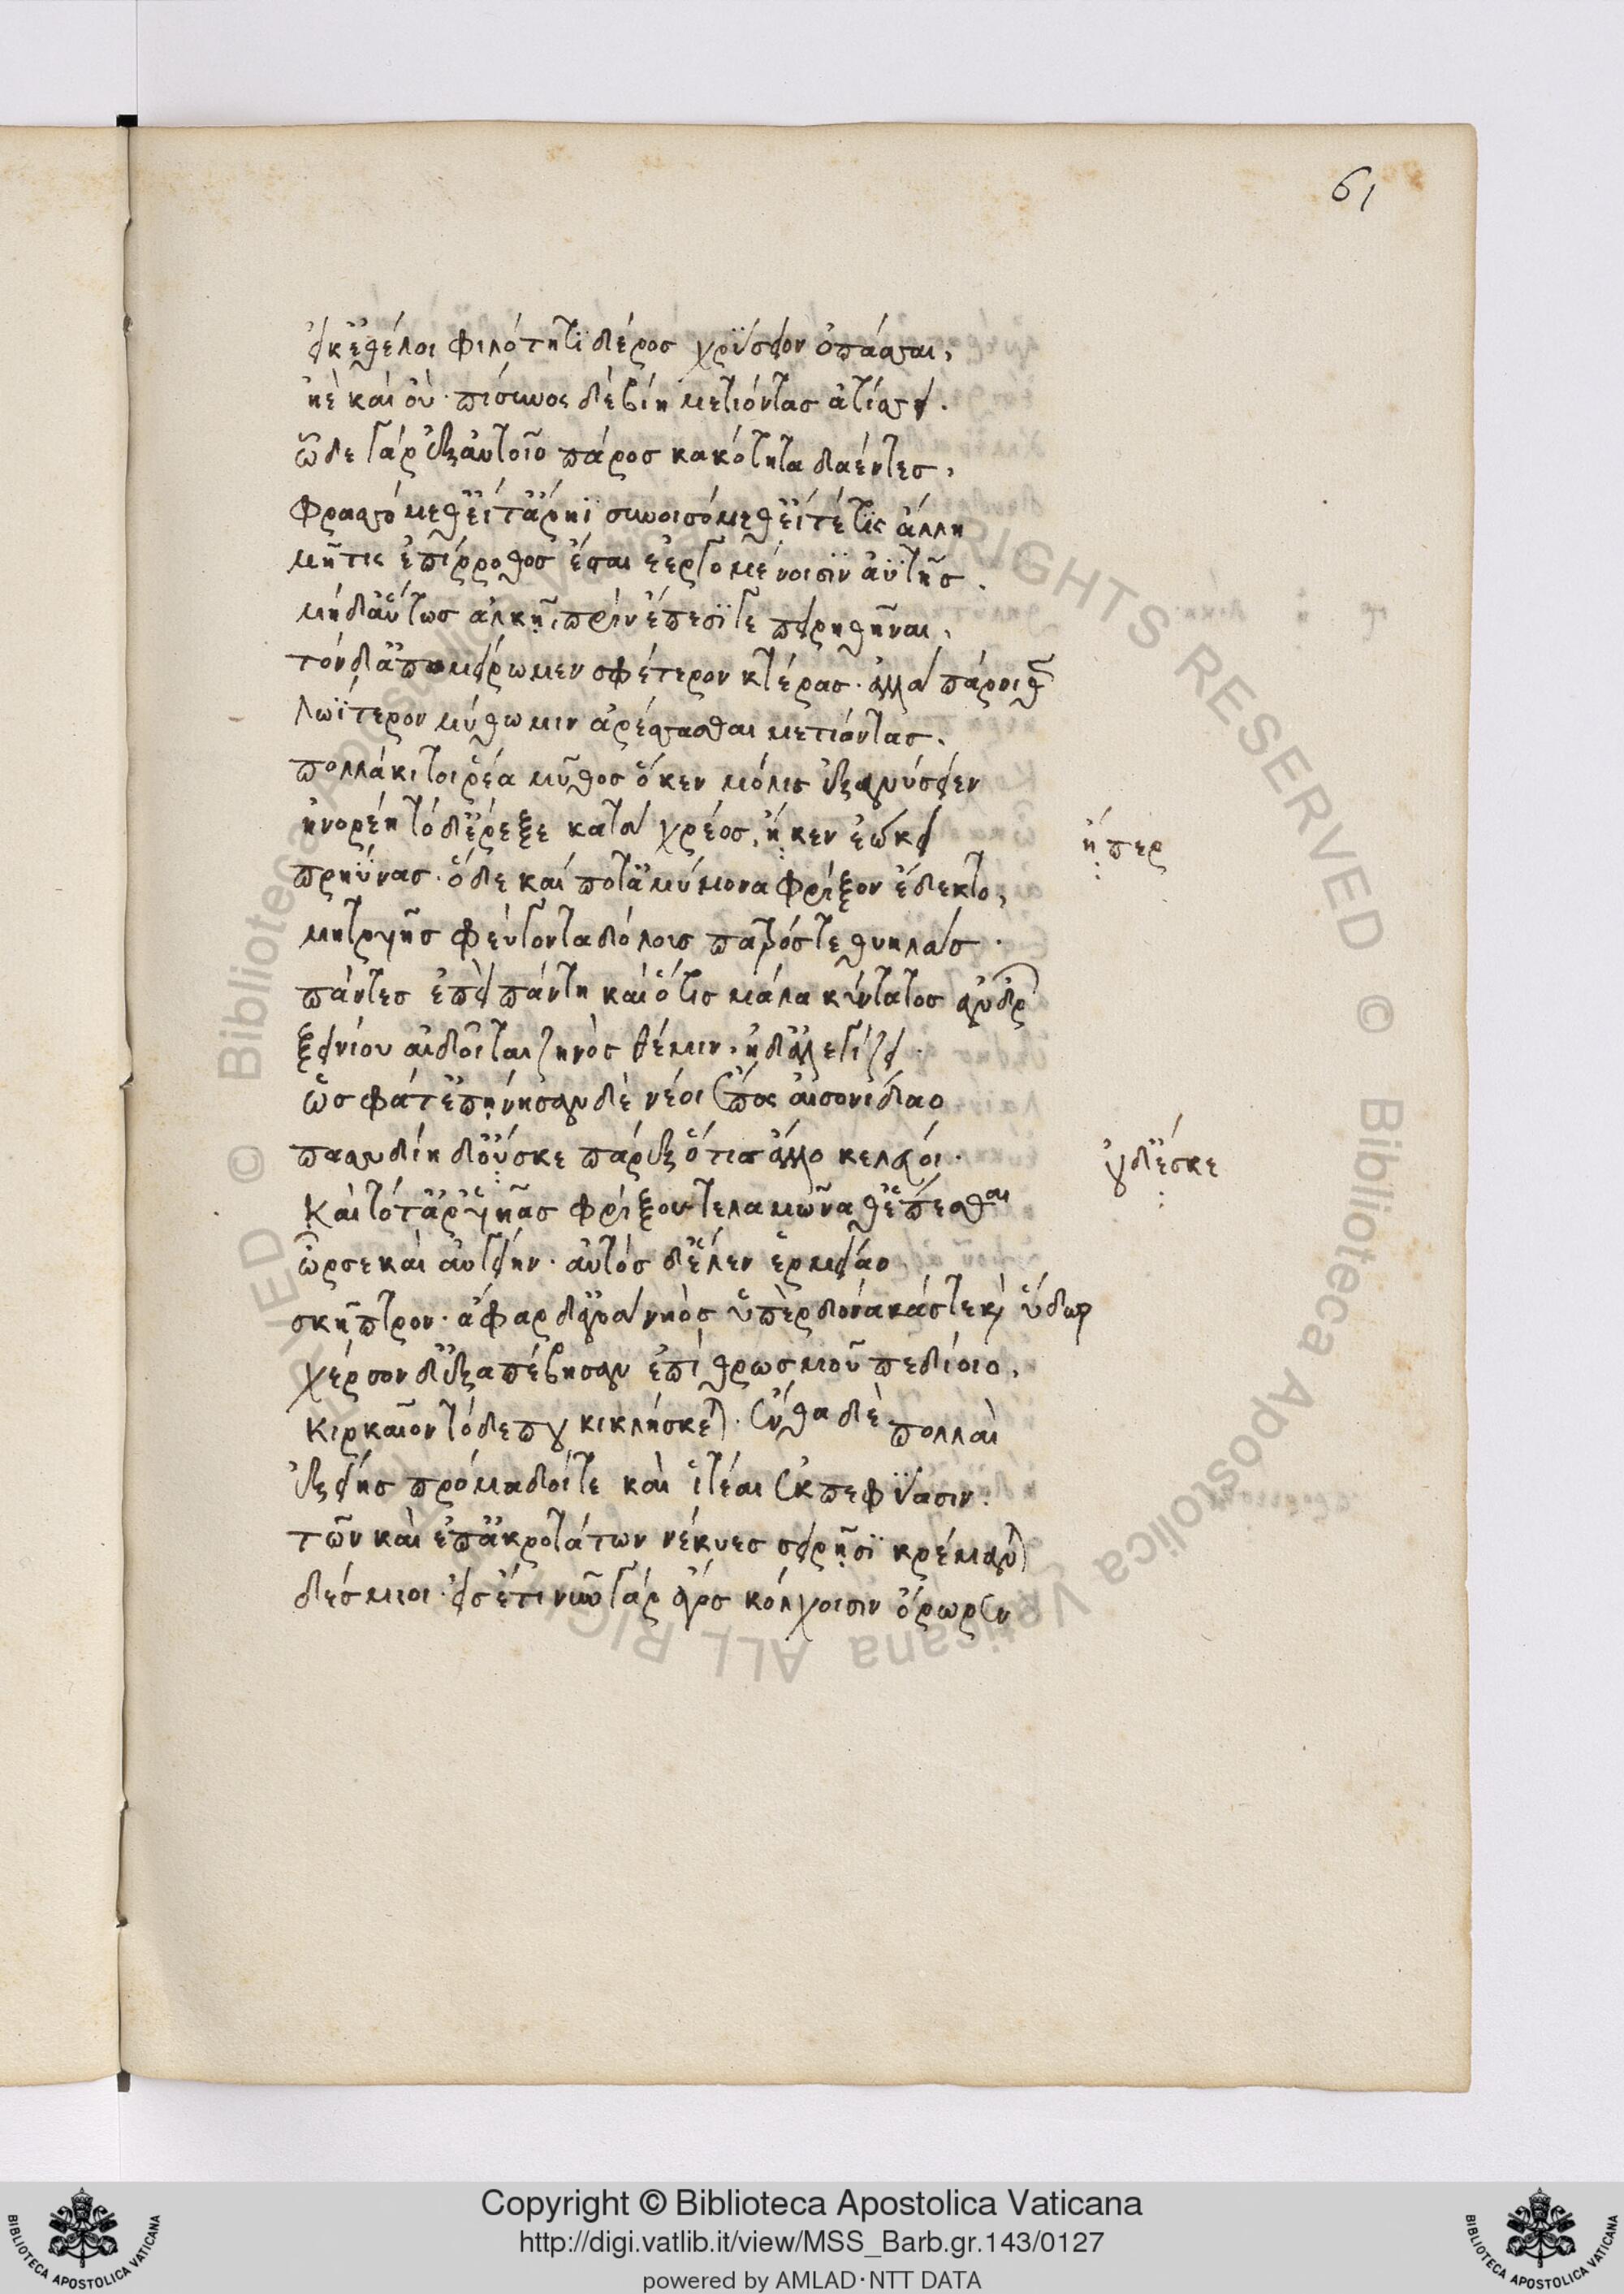 61
εἴ κ' ἐθέλοι φιλότητι δέρος χρύσειον ὀπάσσαι,
ἠὲ καὶ οὔ· πίσυνος δὲ βίῃ μετιόντας ἀτίσσει.
ὧδε γὰρ ἐξ αὐτοῖο πάρος κακότητα δαέντες,
φρασσόμεθ' εἴτ' ἄρηϊ συνοισόμεθ' εἴτέ τις ἄλλη
μῆτις ἐπίρροθος ἔσται ἐεργομένοισιν ἀϋτῆς.
μὴ δ' αὔτως ἀλκῇ, πρὶν ἔπεσί γε πειρηθῆναι,
τόνδ' ἀπαμείρωμεν σφέτερον κτέρας· ἀλλὰ πάροιθ
λωΐτερον μύθῳ μιν ἀρέσσασθαι μετιόντας.
πολλάκι τοι ῥέα μῦθος ὅ κεν μόλις ἐξανύσειεν
ἠνορέη τό δ' ἔρεξε κατὰ χρέος, ᾗ κεν ἐῴκει
ᾗπερ
πρηΰνας· ὅδε καί ποτ' ἀμύμονα φρίξον ἔδεκτο,
μητρυιῆς φεύγοντα δόλους πατρός τε θυηλάς·
πάντες ἐπεὶ πάντη καὶ ὅτις μάλα κύντατος ἀνδρ
ξεινίου αἰδεῖται ζηνὸς θέμιν, ἠδ' ἀλεγίζει.
ὣς φάτ' ἐπῄνησαν δὲ νέοι ἔπος αἰσονίδαο
πασσυδίη δ' οὔσκε πάρεξ ὅτις ἄλλο κελεύοι·
οὐδ' ἔσκε
καὶ τότ' ἄρ' υἱῆας φρίξου τελαμῶνα θ' ἕπεσθαι
ὦρσε καὶ αὐγείην· αὐτὸς δ' ἕλεν ἑρμείαο
σκῆπτρον· ἄφαρ δ' ἄρα νηὸς ὑπὲρ δόνακάς τε καὶ ὕδωρ
χέρσον δ' ἐξαπέβησαν ἐπὶ θρωσμοῦ πεδίοιο.
κιρκαῖον τό δέ που κικλήσκεται· ἔνθα δὲ πολλαὶ
ἑξείης πρόμαδοί τε καὶ ἰτέαι ἐκπεφύασιν.
τῶν καὶ ἐπ' ἀκροτάτων νέκυες σειρῇσι κρέμανται
δέσμιοι· εἰσέτι νῦν γὰρ ἄγος κόλχοισιν ὄρωρεν
Copyright © Biblioteca Apostolica Vaticana
http://digi.vatlib.it/view/MSS_Barb.gr.143/0127
powered by AMLAD·NTT DATA
BIBLIOTECA APOSTOLICA VATICANA
BIBLIOTECA APOSTOLICA VATICANA
© Biblioteca Apostolica Vaticana ALL RIGHTS RESERVED © Biblioteca Apostolica Vaticana ALL RIGHTS RESERVED